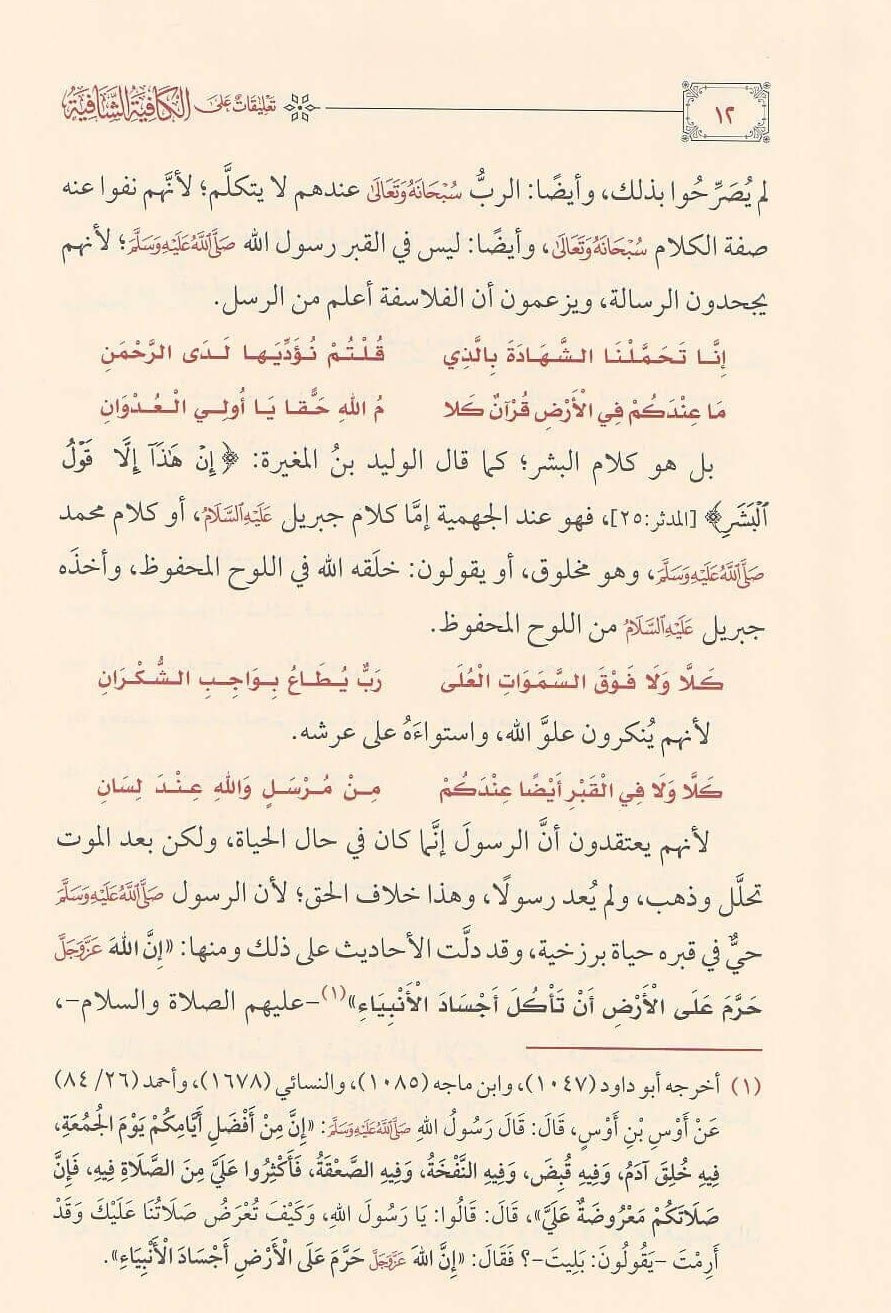 ١٢ تعليقات على الكافية الشافية
لم يُصَرِّحُوا بذلك، وأيضًا: الربُّ سُبْحَانَهُ وَتَعَالَىٰ عندهم لا يتكلَّم؛ لأنَّهم نفوا عنه
صفة الكلام سُبْحَانَهُ وَتَعَالَىٰ، وأيضًا: ليس في القبر رسول الله صَلَّى اللَّهُ عَلَيْهِ وَسَلَّمَ؛ لأنهم
يجحدون الرسالة، ويزعمون أن الفلاسفة أعلم من الرسل.
إِنَّـا تَحَمَّلْنَا الشَّهَادَةَ بِالَّذِي قُلْتُمْ نُؤَدِّيَهَا لَدَى الرَّحْمَنِ
مَا عِنْدَكُمْ فِي الْأَرْضِ قُرْآنٌ كَلا مُ اللهِ حَقًّا يَا أُولِي الْعُدْوَانِ
بل هو كلام البشر؛ كما قال الوليد بنُ المغيرة: ﴿إِنْ هَٰذَآ إِلَّا قَوْلُ
ٱلْبَشَرِ﴾ [المدثر:٢٥]، فهو عند الجهمية إمَّا كلام جبريل عَلَيْهِ السَّلَامُ، أو كلام محمد
صَلَّى اللَّهُ عَلَيْهِ وَسَلَّمَ، وهو مخلوق، أو يقولون: خلَقه الله في اللوح المحفوظ، وأخذَه
جبريل عَلَيْهِ السَّلَامُ من اللوح المحفوظ.
كَلَّا وَلَا فَوْقَ السَّمَوَاتِ الْعُلَى رَبٌّ يُطَاعُ بِوَاجِبِ الشُّكْرَانِ
لأنهم يُنكرون علوَّ الله، واستواءَهُ على عرشه.
كَلَّا وَلَا فِي الْقَبْرِ أَيْضًا عِنْدَكُمْ مِنْ مُرْسَلٍ وَاللهِ عِنْدَ لِسَانِ
لأنهم يعتقدون أنَّ الرسولَ إنَّما كان في حال الحياة، ولكن بعد الموت
تحلَّل وذهب، ولم يُعد رسولًا، وهذا خلاف الحق؛ لأن الرسول صَلَّى اللَّهُ عَلَيْهِ وَسَلَّمَ
حيٌّ في قبره حياة برزخية، وقد دلَّت الأحاديث على ذلك ومنها: «إِنَّ اللهَ عَزَّوَجَلَّ
حَرَّمَ عَلَى الْأَرْضِ أَنْ تَأْكُلَ أَجْسَادَ الْأَنْبِيَاءِ»(١) -عليهم الصلاة والسلام-،
(١) أخرجه أبو داود (١٠٤٧)، وابن ماجه (١٠٨٥)، والنسائي (١٦٧٨)، وأحمد (٢٦/ ٨٤)
عَنْ أَوْسِ بْنِ أَوْسٍ، قَالَ: قَالَ رَسُولُ اللهِ صَلَّى اللَّهُ عَلَيْهِ وَسَلَّمَ: «إِنَّ مِنْ أَفْضَلِ أَيَّامِكُمْ يَوْمَ الْجُمُعَةِ،
فِيهِ خُلِقَ آدَمُ، وَفِيهِ قُبِضَ، وَفِيهِ النَّفْخَةُ، وَفِيهِ الصَّعْقَةُ، فَأَكْثِرُوا عَلَيَّ مِنَ الصَّلَاةِ فِيهِ، فَإِنَّ
صَلَاتَكُمْ مَعْرُوضَةٌ عَلَيَّ»، قَالَ: قَالُوا: يَا رَسُولَ اللهِ، وَكَيْفَ تُعْرَضُ صَلَاتُنَا عَلَيْكَ وَقَدْ
أَرِمْتَ -يَقُولُونَ: بَلِيتَ-؟ فَقَالَ: «إِنَّ اللهَ عَزَّوَجَلَّ حَرَّمَ عَلَى الْأَرْضِ أَجْسَادَ الْأَنْبِيَاءِ».